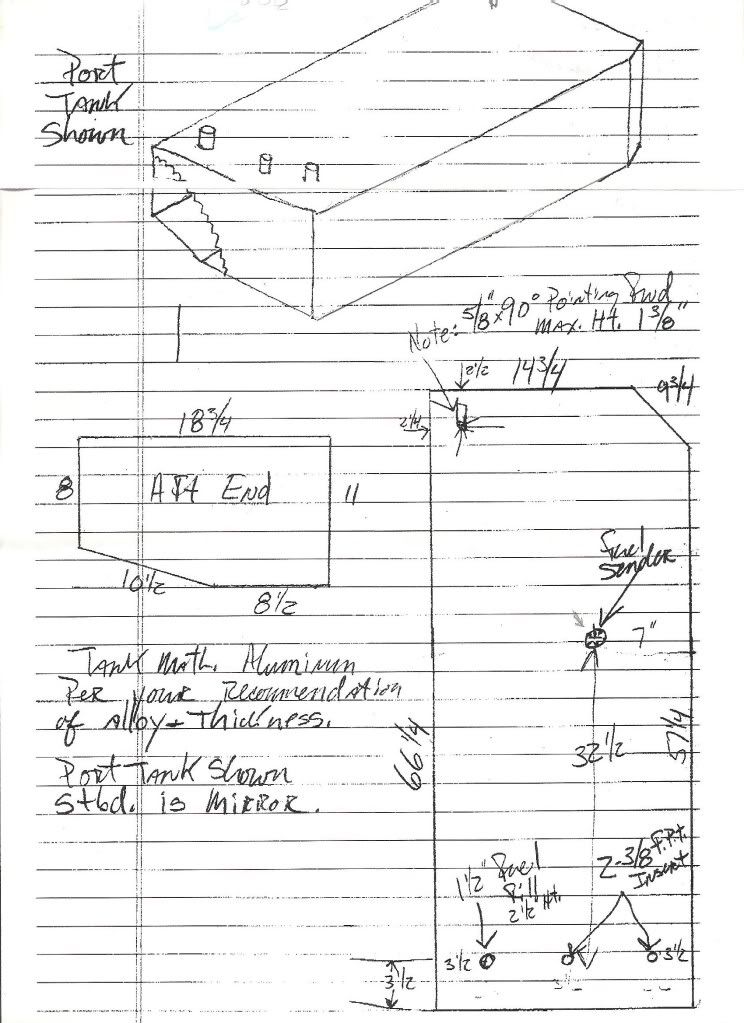 Port
Tank
Shown
Note: 5/8" x 90° Pointing Fwd
Max. Ht. 1 3/8"
2 1/2
14 3/4
9 3/4
2 1/4
18 3/4
8
Aft End
11
10 1/2
8 1/2
Fuel
Sender
7"
Tank Matl. Aluminum
Per your Recommendation
of Alloy + Thickness.
66 1/4
32 1/2
57 1/4
Port Tank Shown
Stbd. is Mirror.
1 1/2" Fuel
Fill
2 1/2 Ht.
2-3/8 F.P.T.
Insert
3 1/2
3 1/2
3 1/2